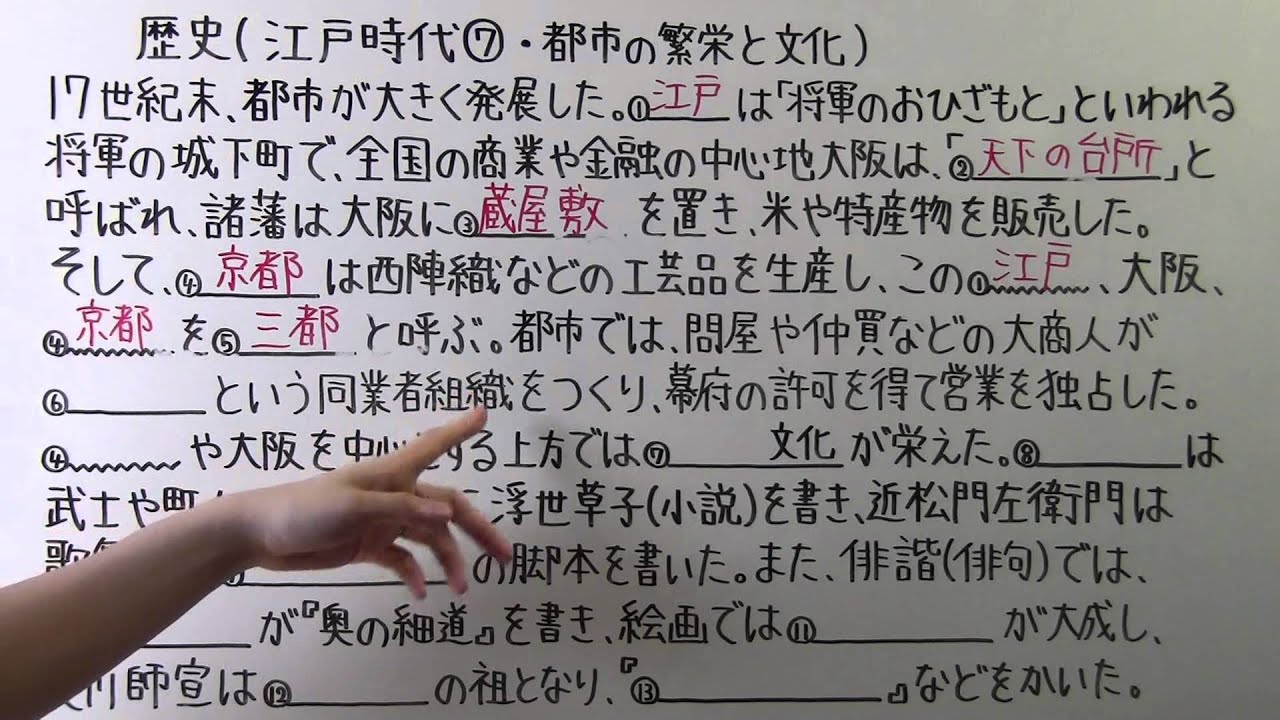 歴史(江戸時代⑦・都市の繁栄と文化)
17世紀末、都市が大きく発展した。①江戸は「将軍のおひざもと」といわれる
将軍の城下町で、全国の商業や金融の中心地大阪は、「②天下の台所」と
呼ばれ、諸藩は大阪に③蔵屋敷を置き、米や特産物を販売した。
そして、④京都は西陣織などの工芸品を生産し、この①江戸、大阪、
④京都を⑤三都と呼ぶ。都市では、問屋や仲買などの大商人が
⑥という同業者組織をつくり、幕府の許可を得て営業を独占した。
④や大阪を中心とする上方では⑦文化が栄えた。⑧は
武士や町 浮世草子(小説)を書き、近松門左衛門は
歌 の脚本を書いた。また、俳諧(俳句)では、
が『奥の細道』を書き、絵画では⑪が大成し、
川師宣は⑫の祖となり、『⑬』などをかいた。